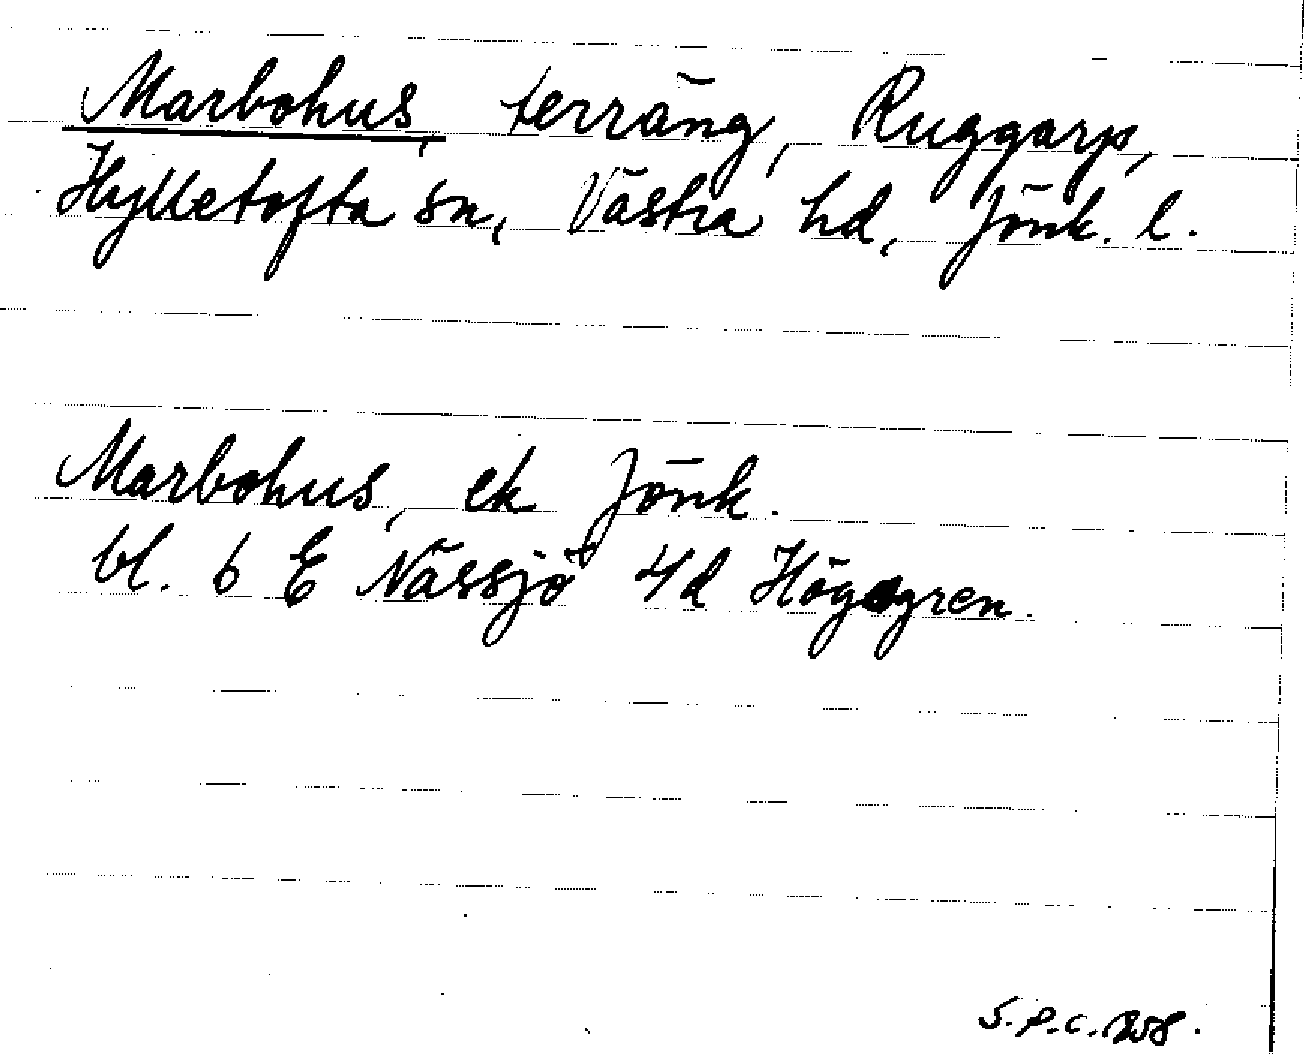 Marbohus, terräng, Ruggarp,
Hylletofta sn, Västra hd, Jönk. l.
Marbohus, ek Jönk.
bl. 6 E Nässjö 4d Höggren.
S.P.C.